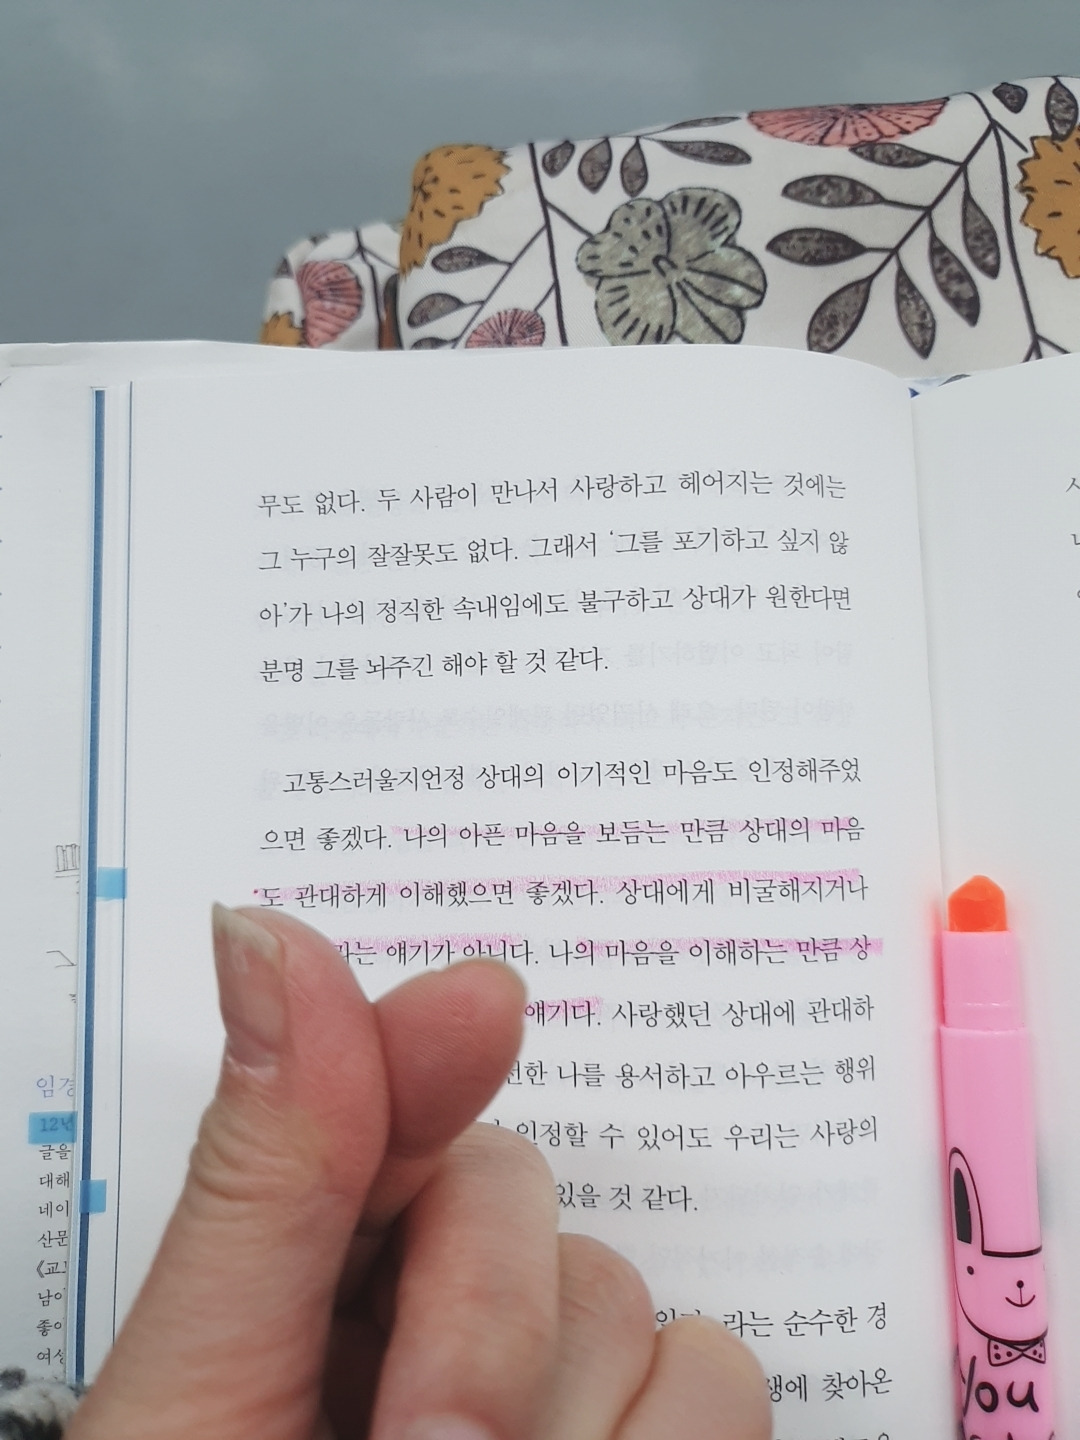 무도 없다. 두 사람이 만나서 사랑하고 헤어지는 것에는
그 누구의 잘잘못도 없다. 그래서 '그를 포기하고 싶지 않
아'가 나의 정직한 속내임에도 불구하고 상대가 원한다면
분명 그를 놔주긴 해야 할 것 같다.
고통스러울지언정 상대의 이기적인 마음도 인정해주었
으면 좋겠다. 나의 아픈 마음을 보듬는 만큼 상대의 마음
도 관대하게 이해했으면 좋겠다. 상대에게 비굴해지거나
라는 얘기가 아니다. 나의 마음을 이해하는 만큼 상
얘기다. 사랑했던 상대에 관대하
나를 용서하고 아우르는 행위
인정할 수 있어도 우리는 사랑의
있을 것 같다.
라는 순수한 경
찾아온
임경
12년
글을
대해
네이
산문
《교
남이
좋아
여성
you